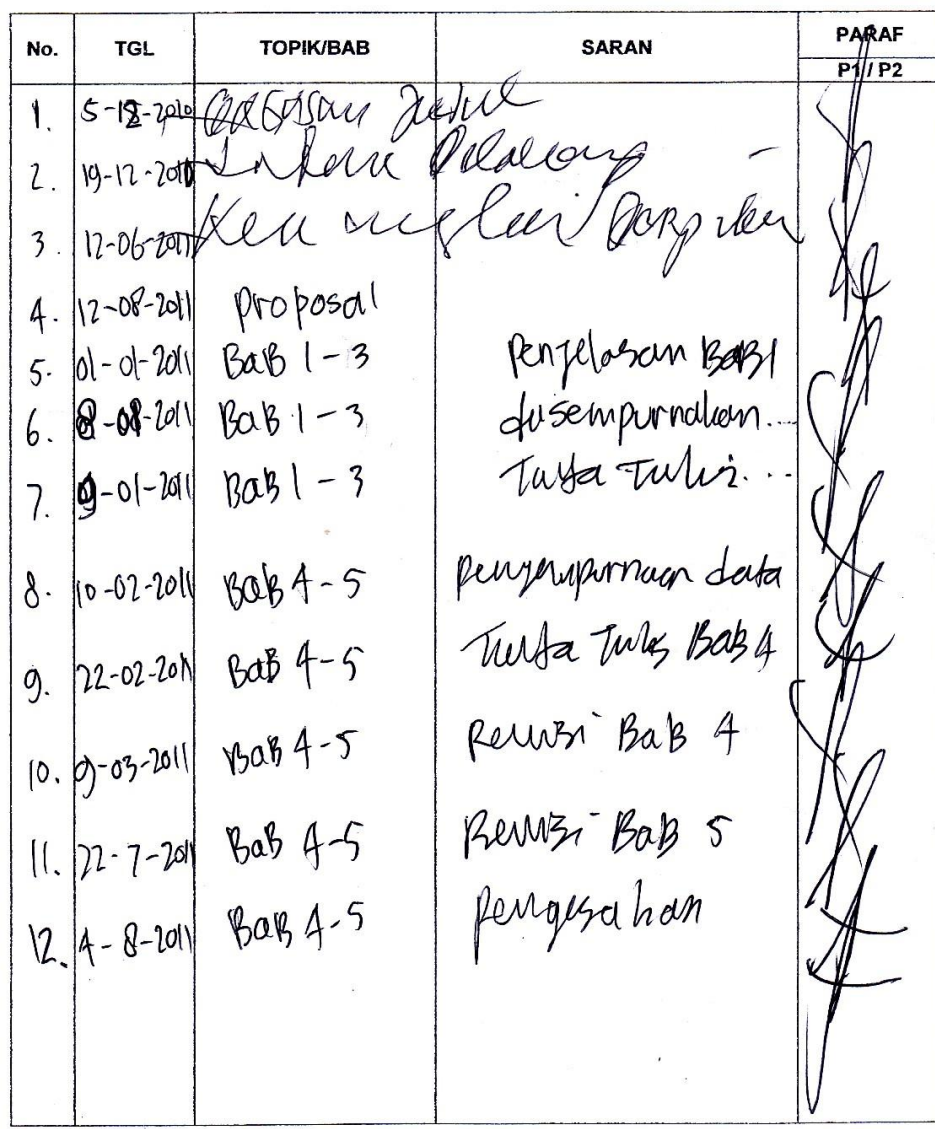 No. TGL TOPIK/BAB SARAN PARAF
P1 / P2
1. 5-12-2010 Judul
2. 19-12-2010
3. 12-06-2011
4. 12-08-2011 proposal
5. 01-01-2011 BaB 1-3 Penjelasan BaB 1
6. 8-08-2011 BaB 1-3 disempurnakan...
7. 9-01-2011 BaB 1-3 Tata Tulis...
8. 10-02-2011 BaB 4-5 penyempurnaan data
9. 22-02-2011 BaB 4-5 Tata Tulis Bab 4
10. 9-03-2011 BaB 4-5 Revisi BaB 4
11. 22-7-2011 BaB 4-5 Revisi BaB 5
12. 4-8-2011 BaB 4-5 pengesahan